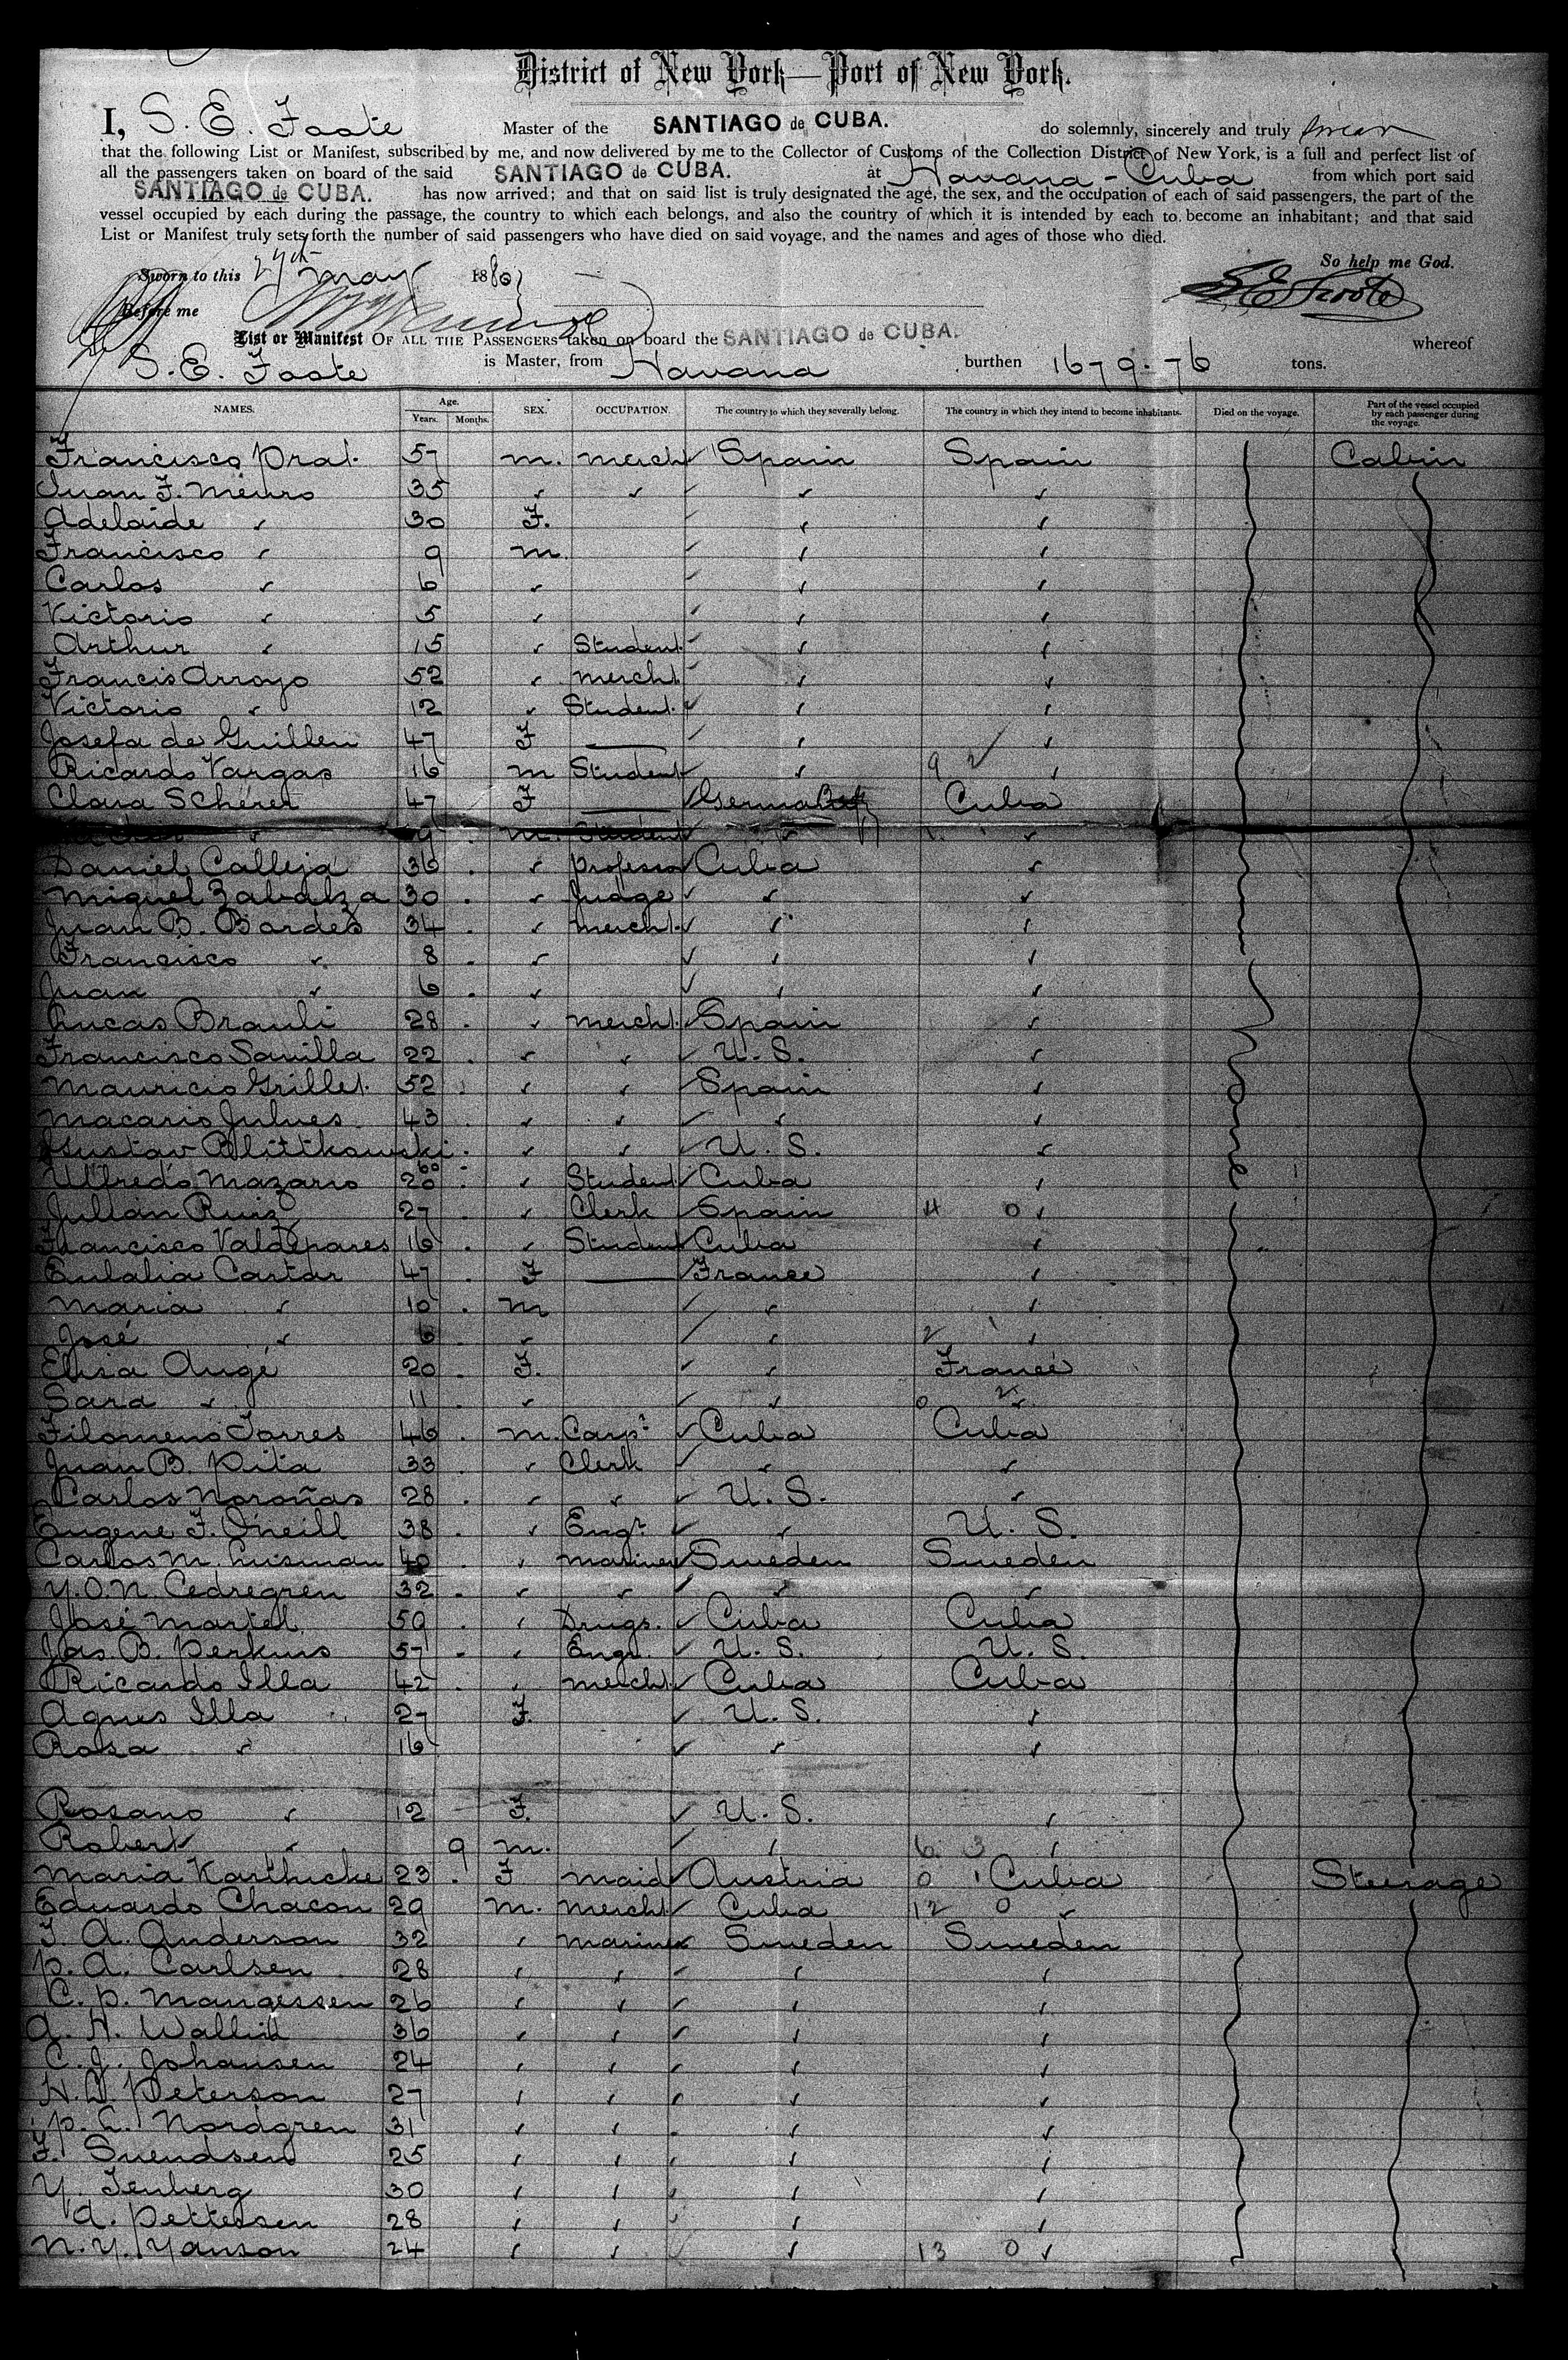 District of New York—Port of New York.
I, S. E. Foote Master of the SANTIAGO de CUBA. do solemnly, sincerely and truly swear
that the following List or Manifest, subscribed by me, and now delivered by me to the Collector of Customs of the Collection District of New York, is a full and perfect list of
all the passengers taken on board of the said SANTIAGO de CUBA. at Havana - Cuba from which port said
SANTIAGO de CUBA. has now arrived; and that on said list is truly designated the age, the sex, and the occupation of each of said passengers, the part of the
vessel occupied by each during the passage, the country to which each belongs, and also the country of which it is intended by each to become an inhabitant; and that said
List or Manifest truly sets forth the number of said passengers who have died on said voyage, and the names and ages of those who died.
So help me God.
Sworn to this 29th May 188
S E Foote
Before me
List or Manifest OF ALL THE PASSENGERS taken on board the SANTIAGO de CUBA. whereof
S. E. Foote is Master, from Havana burthen 1679.76 tons.
NAMES. Age. Years. Months. SEX. OCCUPATION. The country to which they severally belong. The country in which they intend to become inhabitants. Died on the voyage. Part of the vessel occupied by each passenger during the voyage.
Francisco Prat. 57 m. merch Spain Spain Cabin
Juan F. 35 ✓ ✓ ✓ ✓
Adelaide ✓ 30 F. ✓ ✓
Francisco ✓ 9 m. ✓ ✓
Carlos ✓ 6 ✓ ✓ ✓
Victorio ✓ 5 ✓ ✓ ✓
Arthur ✓ 15 ✓ Student ✓ ✓
Francis Arroyo 52 ✓ mercht ✓ ✓
Victorio ✓ 12 ✓ Student. ✓ ✓
Josefa de Guillen 47 F — ✓ ✓
Ricardo Vargas 16 m Student ✓ 9 2 ✓
Clara Scherer 47 F — Cuba
✓ 9 m. Student ✓ ✓
Daniel Calleja 36 ✓ professor Cuba ✓
Miguel Zabalza 30 ✓ Judge ✓ ✓
Juan B. Bardes 34 ✓ mercht. ✓ ✓
Francisco ✓ 8 ✓ ✓ ✓
Juan ✓ 6 ✓ ✓ ✓
Lucas Brauli 28 ✓ mercht. Spain ✓
Francisco Savilla 22 ✓ ✓ U. S. ✓
Mauricio Grillet. 52 ✓ ✓ Spain ✓
Macario Julves 43 ✓ ✓ ✓ ✓
Gustav Blittkowski 60 ✓ ✓ U. S. ✓
Alfredo Mazario 20 ✓ Student Cuba ✓
Julian Ruiz 27 ✓ Clerk Spain 4 0 ✓
Francisco Valdepares 16 ✓ Student Cuba ✓
Eulalia Cartar 47 F — France ✓
Maria ✓ 10 m ✓ ✓
José ✓ 6 ✓ ✓ 2 1 ✓
Elisa Augé 20 F. ✓ France
Sara ✓ 11 ✓ ✓ 0 2 ✓
Filomeno Torres 46 m. Carpt Cuba Cuba
Juan B. Pita 33 ✓ Clerk ✓ ✓
Carlos Noroñas 28 ✓ ✓ U. S. ✓
Eugene F. Oneill 38 ✓ Engr ✓ U. S.
Carlos M. Lusman 40 ✓ mariner Sweden Sweden
Y. O. N. Cedregren 32 ✓ ✓ ✓ ✓
José Martel 50 ✓ Drugs. Cuba Cuba
Jas B. Perkins 57 ✓ Engr. U. S. U. S.
Ricardo Illa 42 ✓ mercht Cuba Cuba
Agnes Illa 27 F. U. S. ✓
Rosa ✓ 16 ✓ ✓
Rosano ✓ 12 F. U. S. ✓
Robert ✓ 9 m. ✓ 6 3 ✓
Maria Karthicke 23 F maid Austria 0 1 Cuba Steerage
Eduardo Chacon 29 m. mercht Cuba 12 0 ✓
F. A. Anderson 32 ✓ mariner Sweden Sweden
P. A. Carlsen 28 ✓ ✓ ✓ ✓
C. P. Mangessen 26 ✓ ✓ ✓ ✓
A. H. Wallin 36 ✓ ✓ ✓ ✓
C. J. Johansen 24 ✓ ✓ ✓ ✓
H. Peterson 27 ✓ ✓ ✓ ✓
P. L. Nordgren 31 ✓ ✓ ✓ ✓
F. Suendsen 25 ✓ ✓ ✓ ✓
Y. Tenberg 30 ✓ ✓ ✓ ✓
A. Pettersen 28 ✓ ✓ ✓ ✓
N. Y. Yanson 24 ✓ ✓ ✓ 13 0 ✓